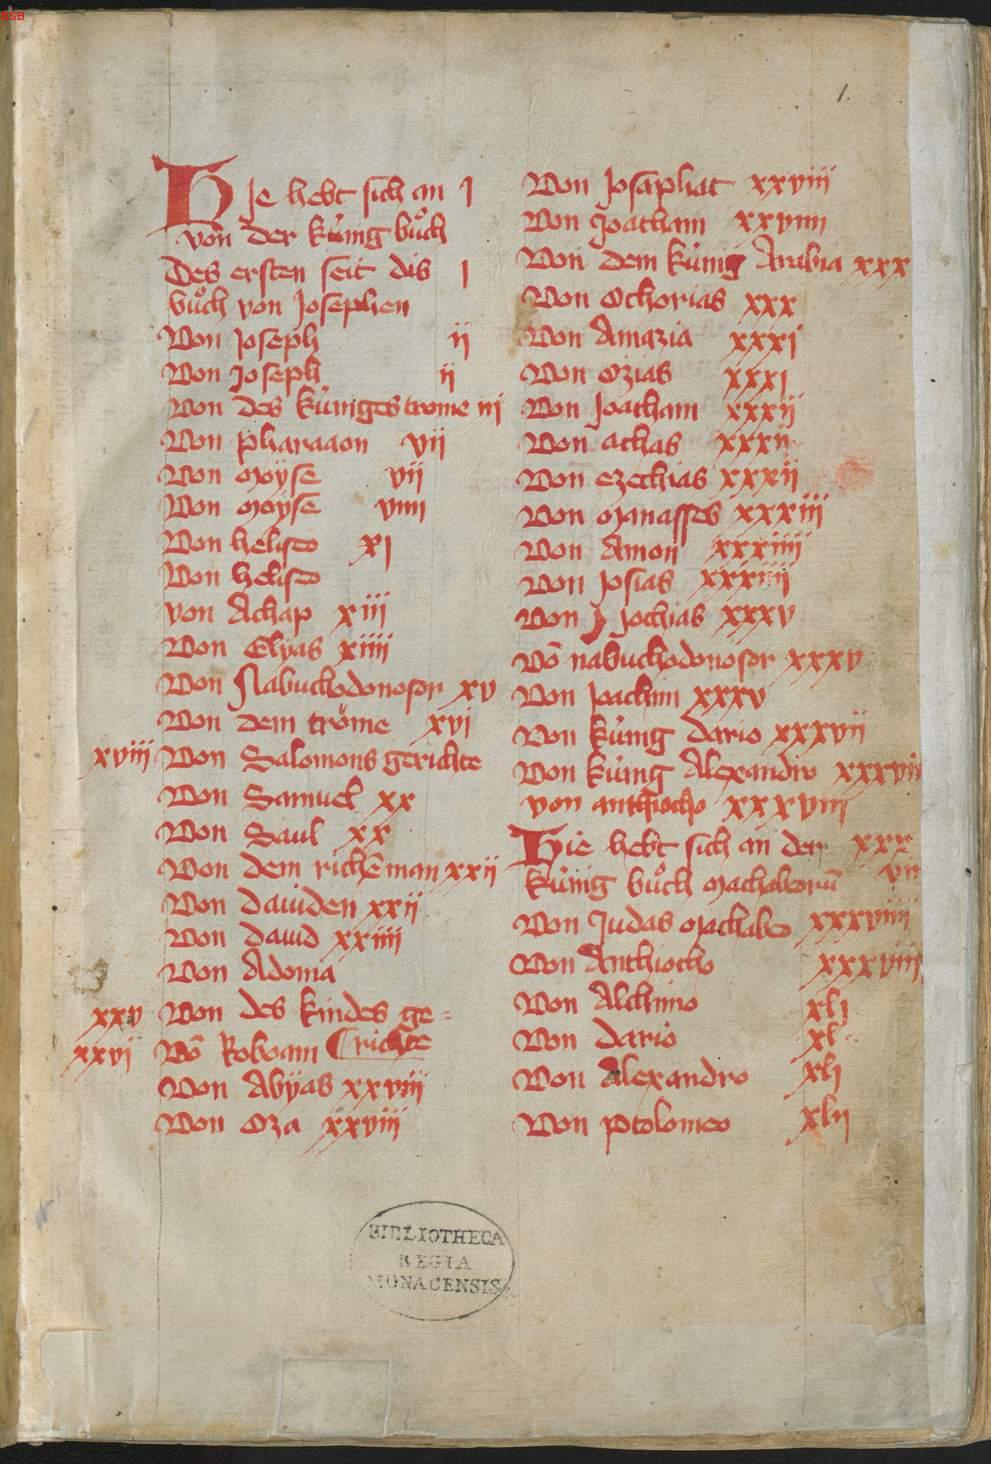 BSB
1.
Hie hebt sich an I
von der kúnig bůch
Des ersten seit dis I
bůch von Josephen
Von Joseph ii
Von Joseph ii
Von des kúniges trome iij
Von pharaaon vii
Von Moÿse vii
Von Moyse viiii
Von heliseo xi
Von heliseo
von Achap xiii
Von Elyas xiiii
Von Nabuchodonosor xv
Von dem tröme xvi
xviii Von Salomons gerichte
Von Samuel xx
Von Saul xx
Von dem richē man xxii
Von dauiden xxii
Von dauid xxiiii
Von Adonia
xxv Von des kindes ge=
xxvi Vō Roboam richte
Von Abÿas xxviii
Von Oza xxviii
Von Josaphat xxviii
Von Joatham xxviiii
Von dem kúnig Arabia xxx
Von Ochorias xxx
Von Amazia xxxi
Von Ozias xxxi
Von Joatham xxxii
Von achas xxxii
Von ezechias xxxii
Von Manasses xxxiii
Von Amon xxxiiii
Von Josias xxxiiii
Von Jochias xxxv
Vō nabuchodonosor xxxv
Von Joachim xxxv
Von kúnig dario xxxvii
Von kúnig Alexandro xxxvii
von anthiocho xxxviii
Hie hebt sich an der xxx
kúnig bůch Machabeorū vii
Von Judas Machabeo xxxviiii
Von Anthiocho xxxviiii
Von Alchimo xli
Von dario xl
Von Alexandro xli
Von ptolomeo xlii
BIBLIOTHECA
REGIA
MONACENSIS